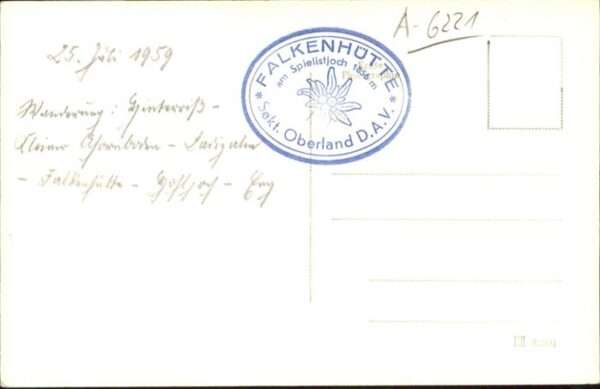 A-6221
25. Juli 1959
* FALKENHÜTTE *
am Spielistjoch 1856 m
Sekt. Oberland D.A.V.
Wanderung: Hinterriß-
Kleiner Ahornboden - Ladizalm
- Falkenhütte - Hohljoch - Eng